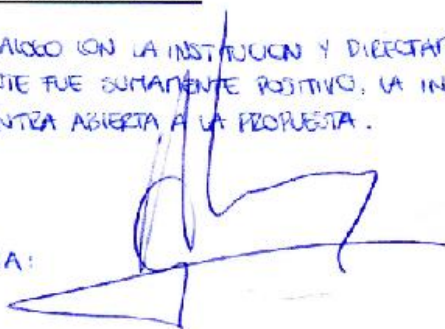 ALOGO CON LA INSTITUCION Y DIRECTAM
TE FUE SUMAMENTE POSITIVO, LA IN
NTRA ABIERTA A LA PROPUESTA.
A: